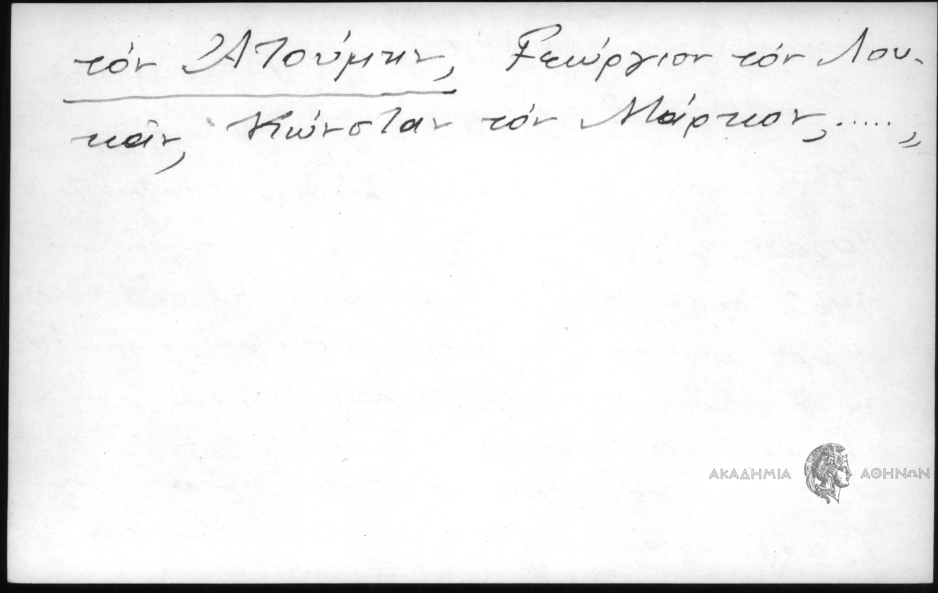 τόν Ἀτούμην, Γεώργιον τόν Λου-
κᾶν, Κώνσταν τόν Μάρκον,.....,
ΑΚΑΔΗΜΙΑ ΑΘΗΝΩΝ